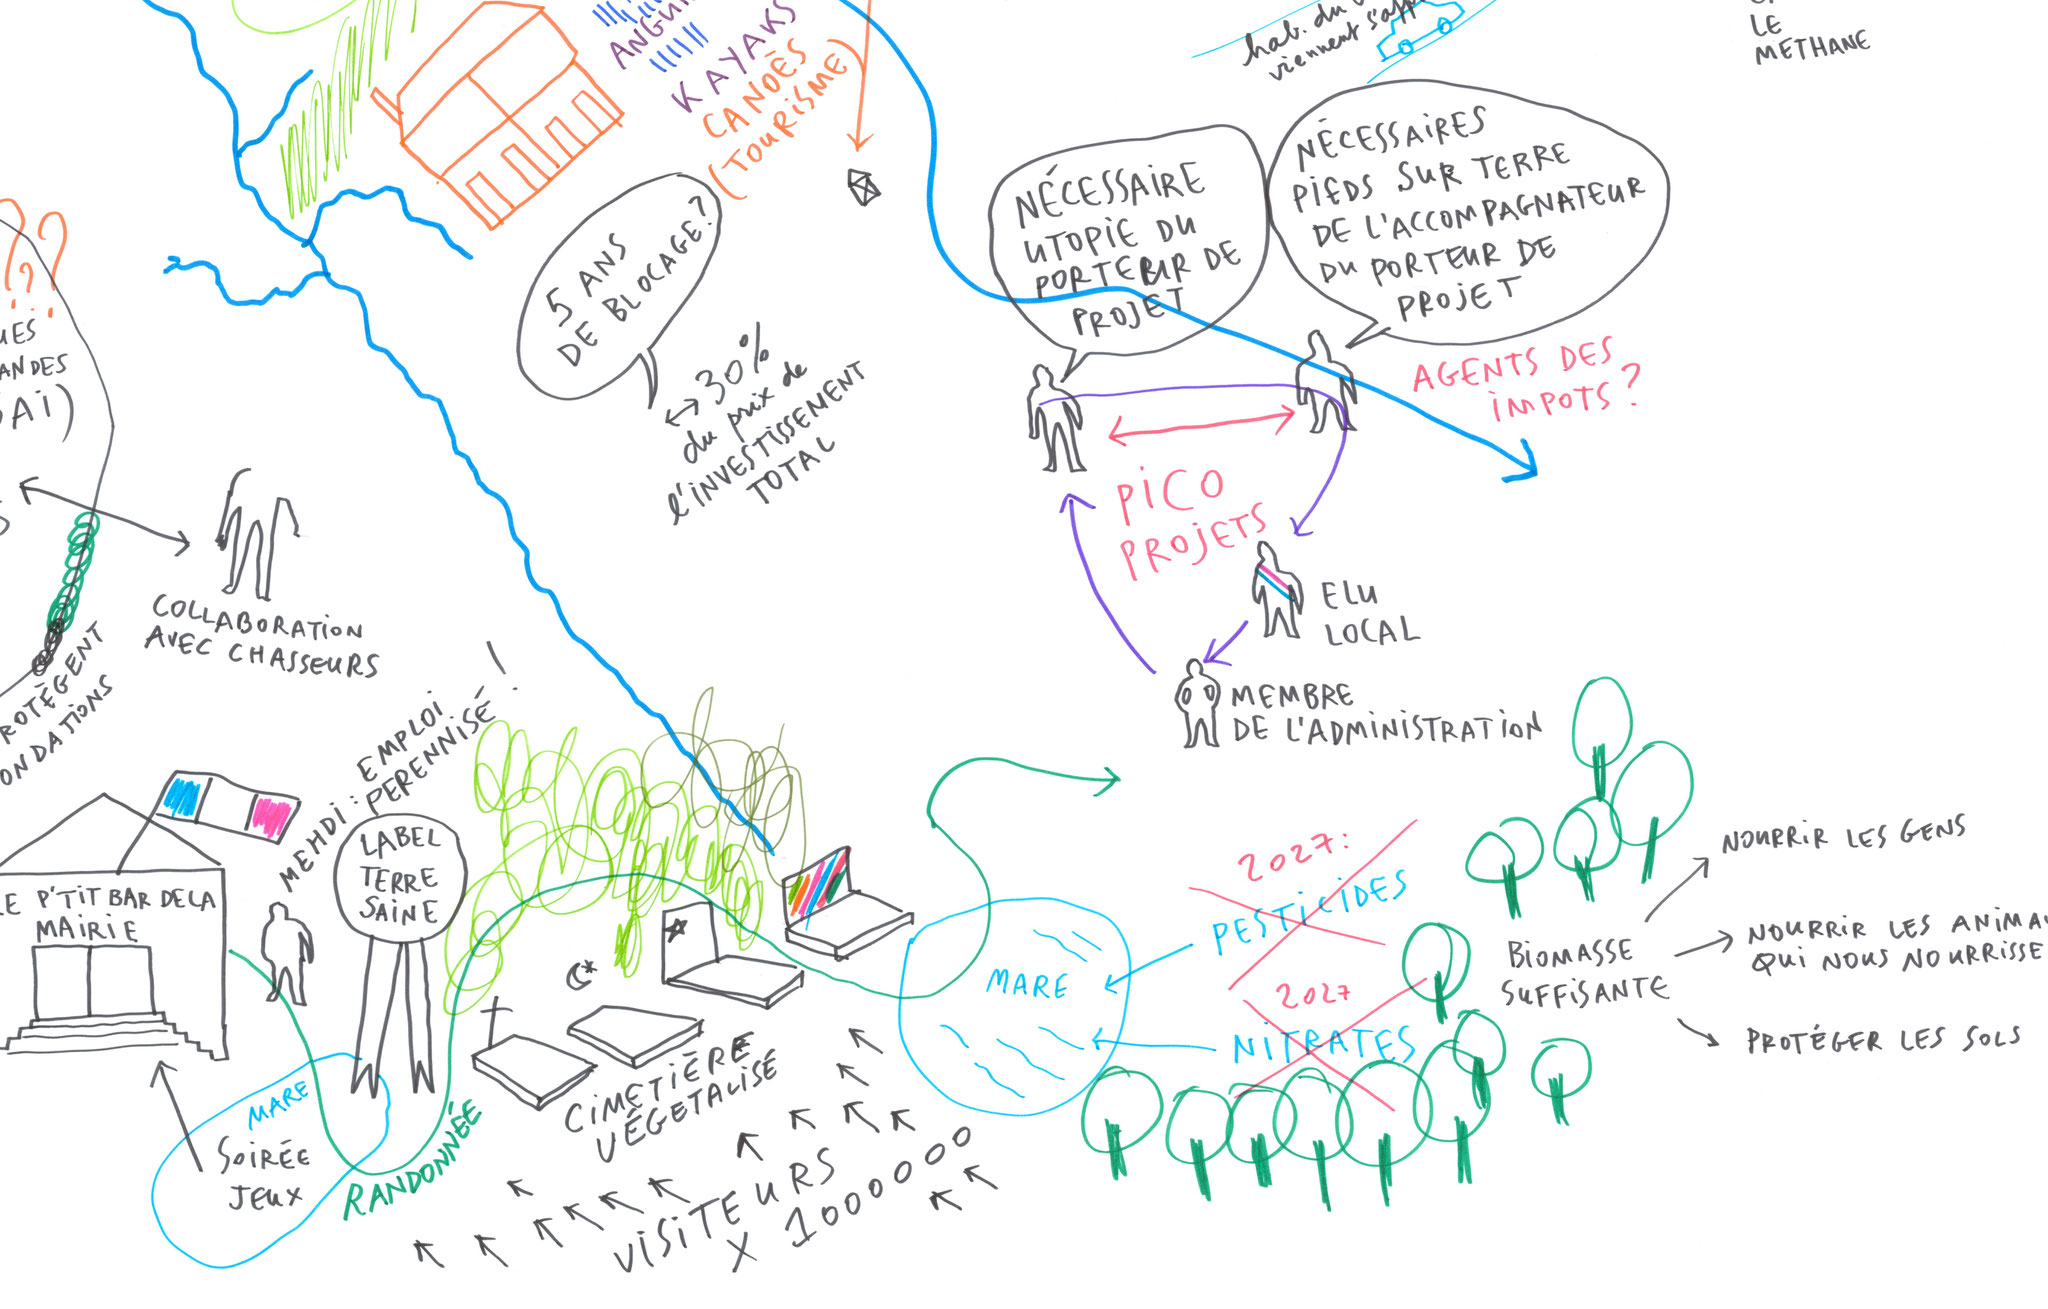 KAYAKS
CANOËS
(TOURISME)
hab. du
viennent s'app
LE
METHANE
5 ANS
DE BLOCAGE?
↔ 30%
du prix de
l'INVESTISSEMENT
TOTAL
NÉCESSAIRE
UTOPIE DU
PORTEUR DE
PROJET
NÉCESSAIRES
PIEDS SUR TERRE
DE L'ACCOMPAGNATEUR
DU PORTEUR DE
PROJET
AGENTS DES
IMPOTS?
PICO
PROJETS
ELU
LOCAL
MEMBRE
DE L'ADMINISTRATION
????
UES
ANDES
SAÏ)
S
COLLABORATION
AVEC CHASSEURS
ROTÈGENT
ONDATIONS
MEHDI: EMPLOI
PERENNISÉ!
LE P'TIT BAR DE LA
MAIRIE
LABEL
TERRE
SAINE
MARE
SOIRÉE
JEUX
RANDONNÉE
CIMETIÈRE
VÉGETALISÉ
VISITEURS
X 1000000
MARE
2027:
PESTICIDES
2027
NITRATES
BIOMASSE
SUFFISANTE
NOURRIR LES GENS
NOURRIR LES ANIMA
QUI NOUS NOURRISSE
PROTÉGER LES SOLS